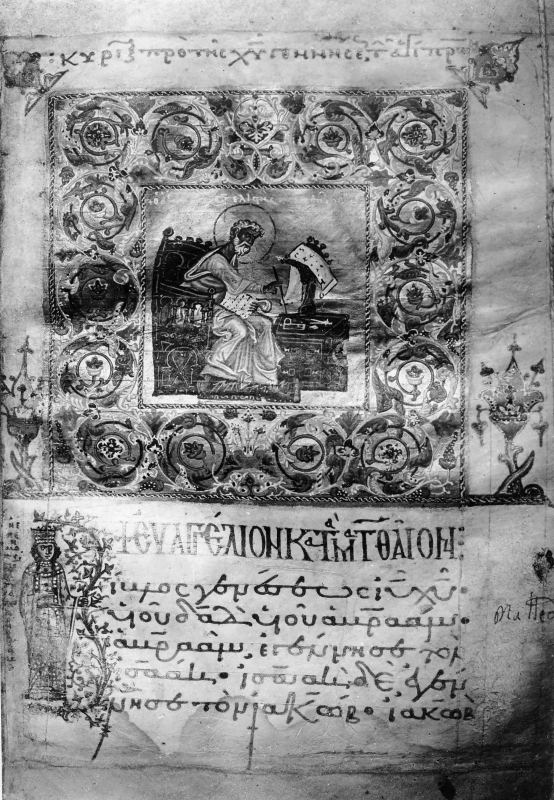 ΠΡΟ ΤΗΣ Χ̅Υ̅ ΓΕΝΝΗΣΕ
+ΕΥΑΓΓΕΛΙΟΝ Κ ΜΑΤΘΑΙΟΝ:
ίβλος γενέσεως ἰ̅υ̅ χ̅υ̅·
υἱοῦ δ̅α̅δ̅ υἱοῦ ἀβραάμ·
ἀβραὰμ, ἐγέννησε τὸν
ἰσαάκ· ἰσαὰκ δὲ ἐγέν
νησε τὸν ἰακώβ· ἰακὼβ